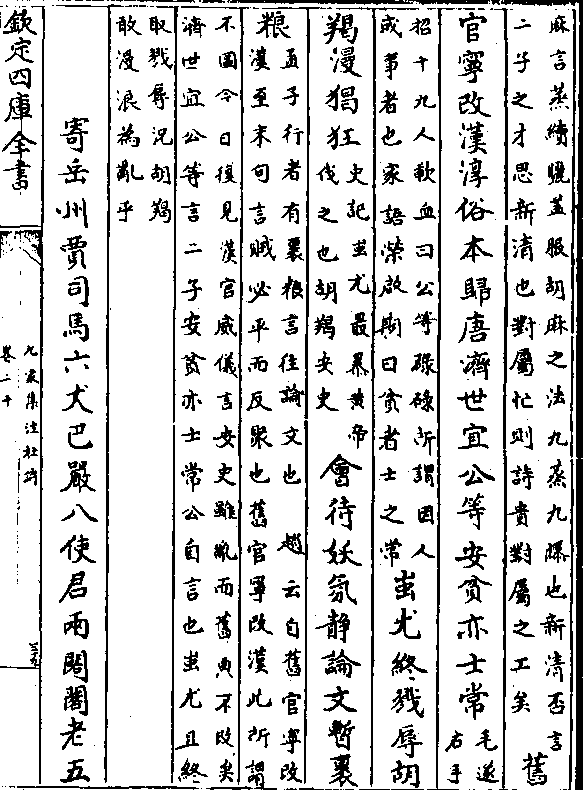 麻言蒸續曬蓋服胡麻之法九蒸九曝也新清否言
二子之才思新清也對屬忙則詩貴對屬之工矣
舊
官寧改漢淳俗本歸唐濟世宜公等安貧亦士常
毛遂
右手
招十九人歃血曰公等碌碌所謂因人
成事者也家語榮啟期曰貧者士之常
蚩尤終戮辱胡
羯漫猖狂
史記蚩尤最暴黄帝
伐之也胡羯安史
會待妖氛静論文暫裹
粮
孟子行者有裹粮言往論文也 趙云自舊官寧改
漢至末句言賊必平而反眾也舊官寧改漢此所謂
不圖今日復見漢官威儀言安史雖亂而舊典不改矣
濟世宜公等言二子安貧亦士常公自言也蚩尤且終
取戮辱况胡羯
敢漫浪為亂乎
寄岳州賈司馬六丈巴嚴八使君兩閣閣老五
欽定四庫全書
九家集注杜詩
卷二十